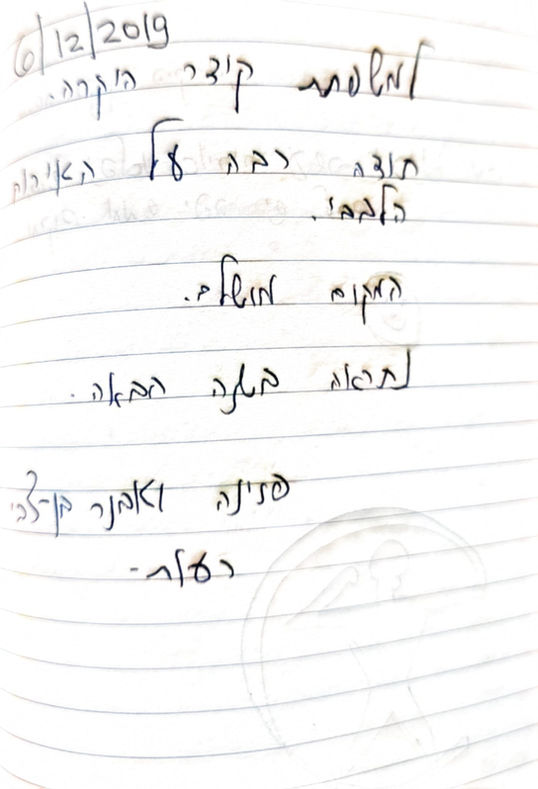 6/12/2019
למשפחת קידר היקרה.
תודה רבה על האירוח
הלבבי.
המקום מושלם.
נתראה בשנה הבאה.
פנינה ואבנר בן-צבי